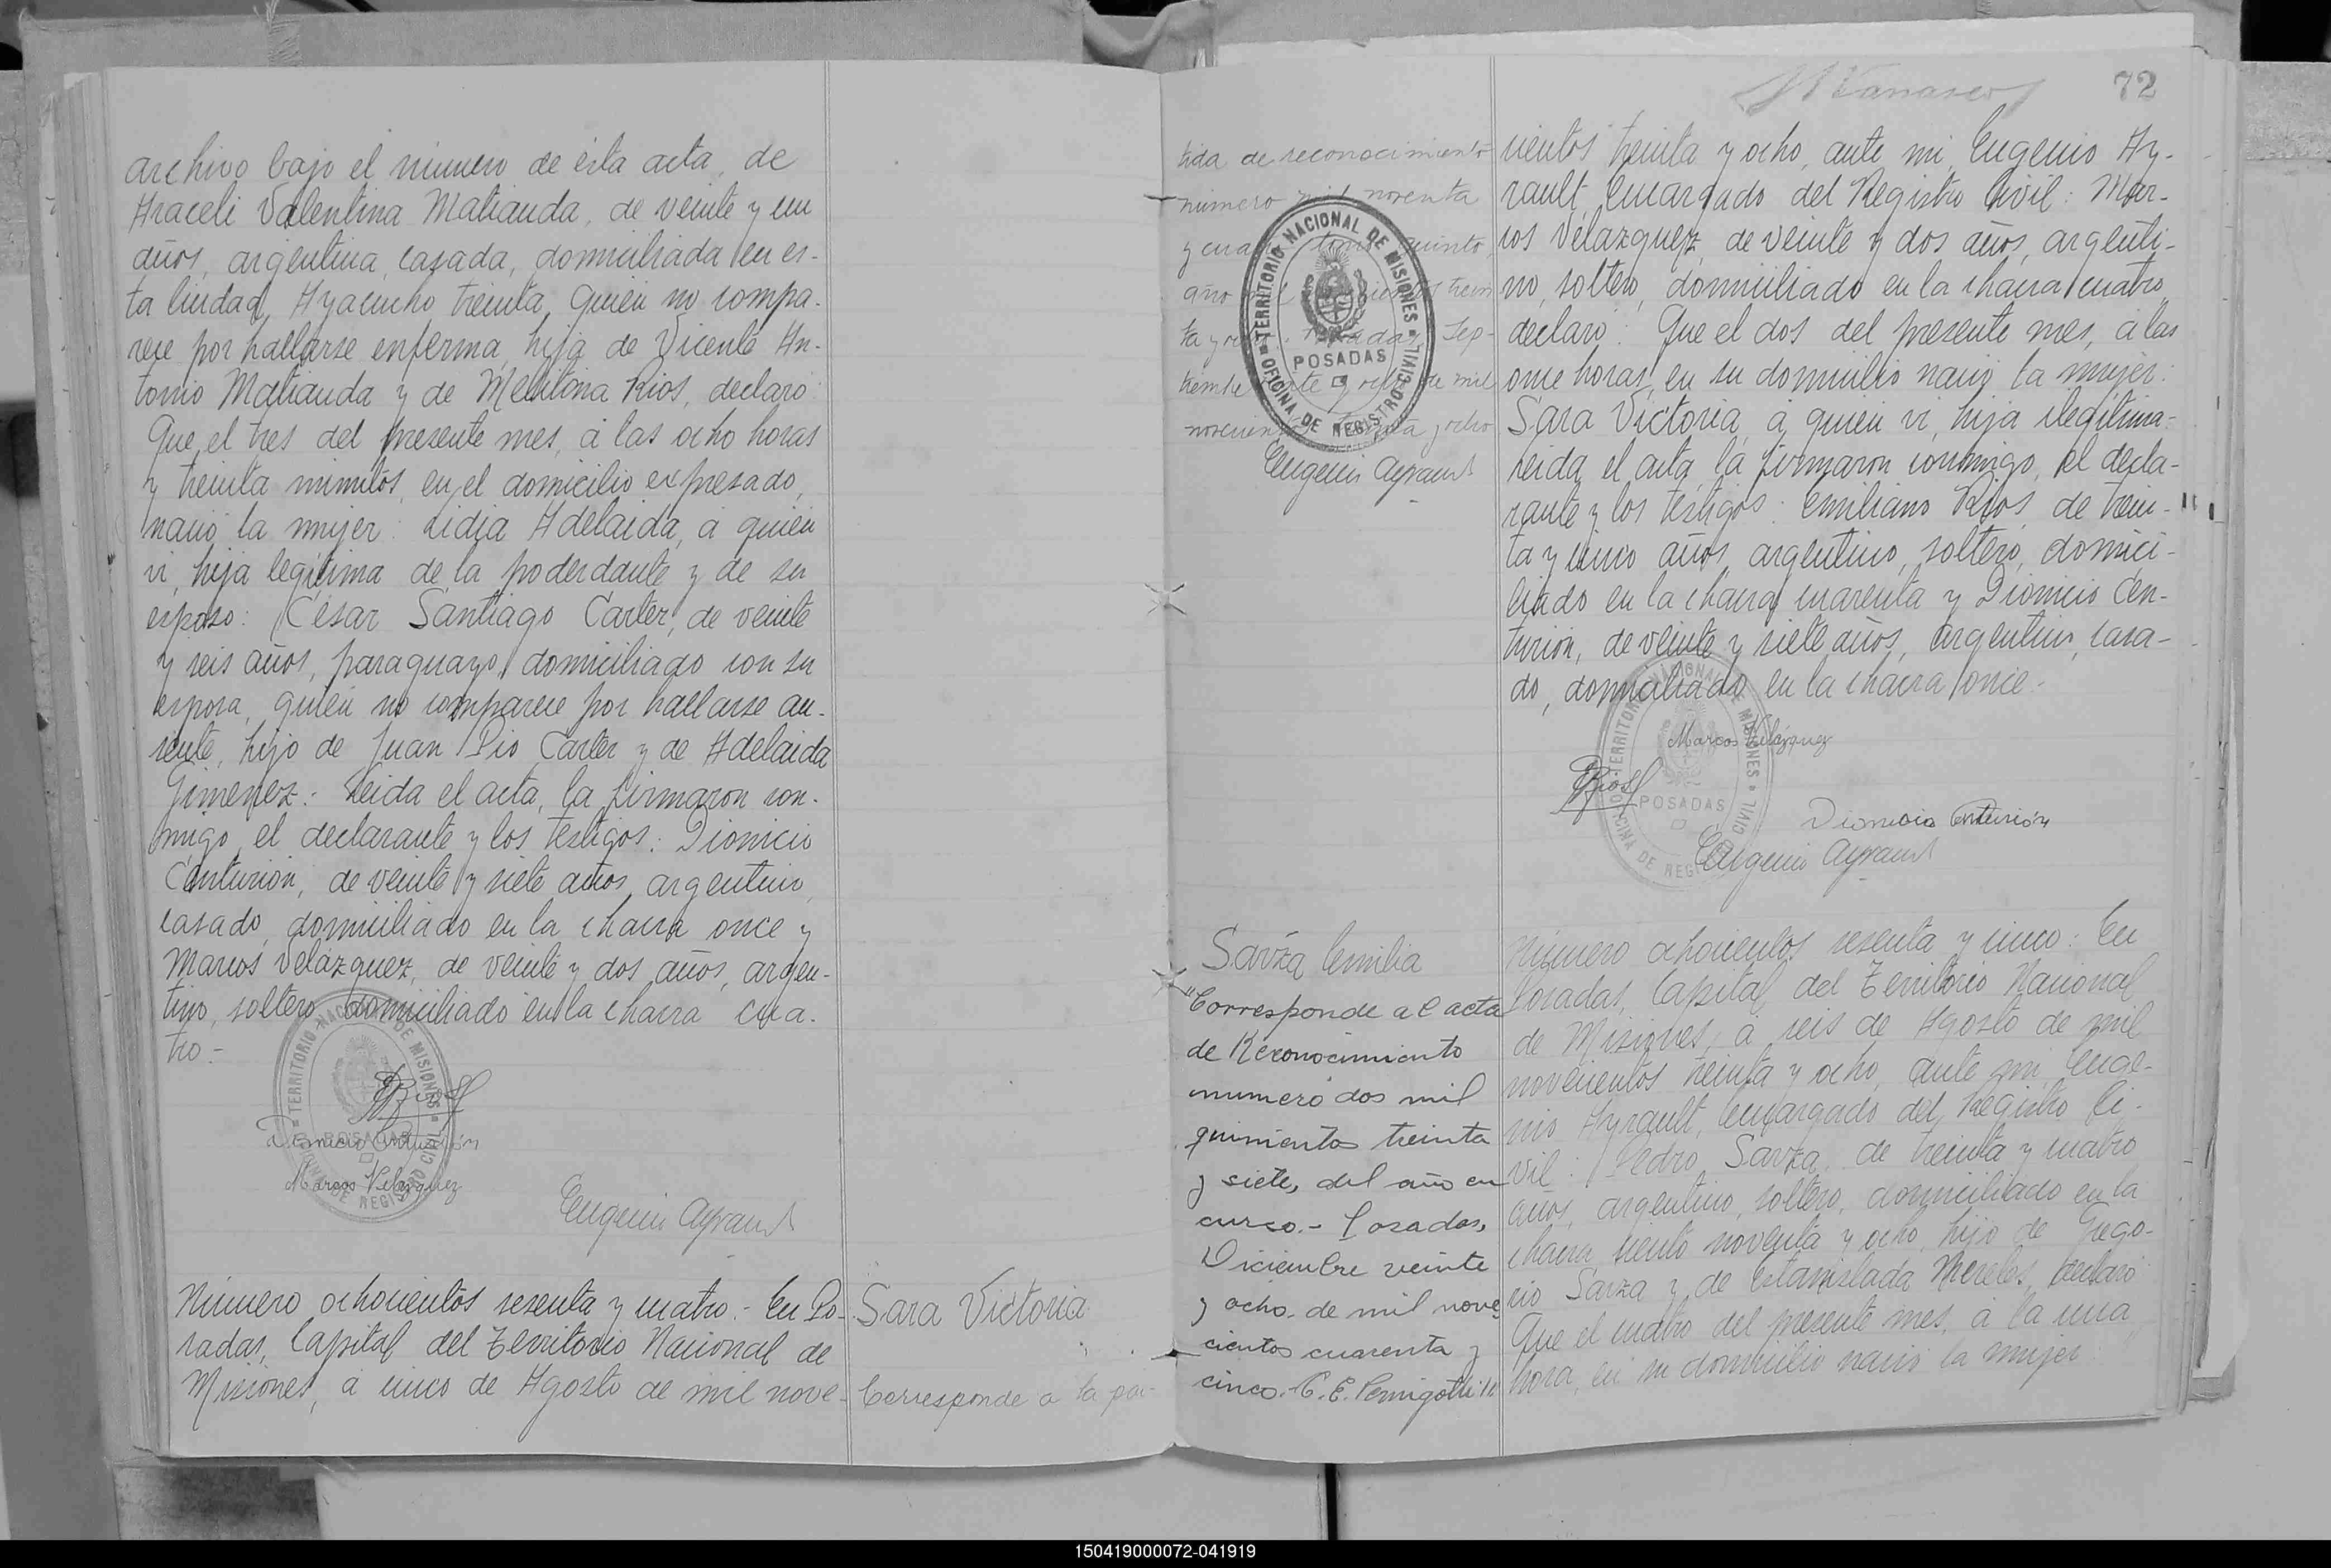 archivo bajo el número de esta acta, de
Araceli Valentina Matiauda, de veinte y un
años, argentina, casada, domiciliada en es-
ta ciudad, Ayacucho treinta, quien no compa-
rece por hallarse enferma, hija de Vicente An-
tonio Matiauda y de Melitona Rios, declaró:
Que el tres del presente mes, á las ocho horas
y treinta minutos, en el domicilio expresado,
nació la mujer: Lidia Adelaida, á quien
vi, hija legítima de la poderdante y de su
esposo: César Santiago Carter, de veinte
y seis años, paraguayo, domiciliado con su
esposa, quien no comparece por hallarse au-
sente, hijo de Juan Pio Carter y de Adelaida
Gimenez.- Leida el acta, la firmaron con-
migo, el declarante y los testigos: Dionicio
Centurión, de veinte y siete años, argentino,
casado, domiciliado en la chacra once y
Marcos Velázquez, de veinte y dos años, argen-
tino, soltero, domiciliado en la chacra cua-
tro.-
TERRITORIO NACIONAL DE MISIONES
POSADAS
OFICINA DE REGISTRO CIVIL
Dionicio Centurión
Marcos Velázquez
Eugenio Ayrault
Número ochocientos sesenta y cuatro.- En Po-
sadas, Capital del Territorio Nacional de
Misiones, á cinco de Agosto de mil nove-
Sara Victoria
Corresponde a la par-
72
tida de reconocimiento
número mil noventa
y quinto,
año
Sep-
mil
y ocho
TERRITORIO NACIONAL DE MISIONES
POSADAS
OFICINA DE REGISTRO CIVIL
Eugenio Ayrault
cientos treinta y ocho, ante mi, Eugenio Ay-
rault, Encargado del Registro Civil: Mar-
cos Velázquez, de veinte y dos años, argenti-
no, soltero, domiciliado en la chacra cuatro,
declaró: Que el dos del presente mes, á las
once horas, en su domicilio nació la mujer:
Sara Victoria, á quien vi, hija ilegítima.-
Leida el acta, la firmaron conmigo, el decla-
rante y los testigos: Emiliano Rios, de trein-
ta y cinco años, argentino, soltero, domici-
liado en la chacra cuarenta y Dionicio Cen-
turión, de veinte y siete años, argentino, casa-
do, domiciliado en la chacra once.-
Marcos Velázquez
TERRITORIO NACIONAL DE MISIONES
POSADAS
OFICINA DE REGISTRO CIVIL
Dionicio Centurión
Eugenio Ayrault
Sarza Emilia
"Corresponde al acta
de Reconocimiento
numero dos mil
quinientos treinta
y siete, del año en
curso.- Posadas,
Diciembre veinte
y ocho de mil nove
cientos cuarenta y
cinco.- C. E.
Número ochocientos sesenta y cinco: En
Posadas, Capital del Territorio Nacional
de Misiones, á seis de Agosto de mil
novecientos treinta y ocho, ante mi, Euge-
nio Ayrault, Encargado del Registro Ci-
vil: Pedro Sarza, de treinta y cuatro
años, argentino, soltero, domiciliado en la
chacra ciento noventa y ocho, hijo de Grego-
rio Sarza y de Estanislada Mereles, declaró:
Que el cuatro del presente mes, á la una
hora, en su domicilio nació la mujer
150419000072-041919